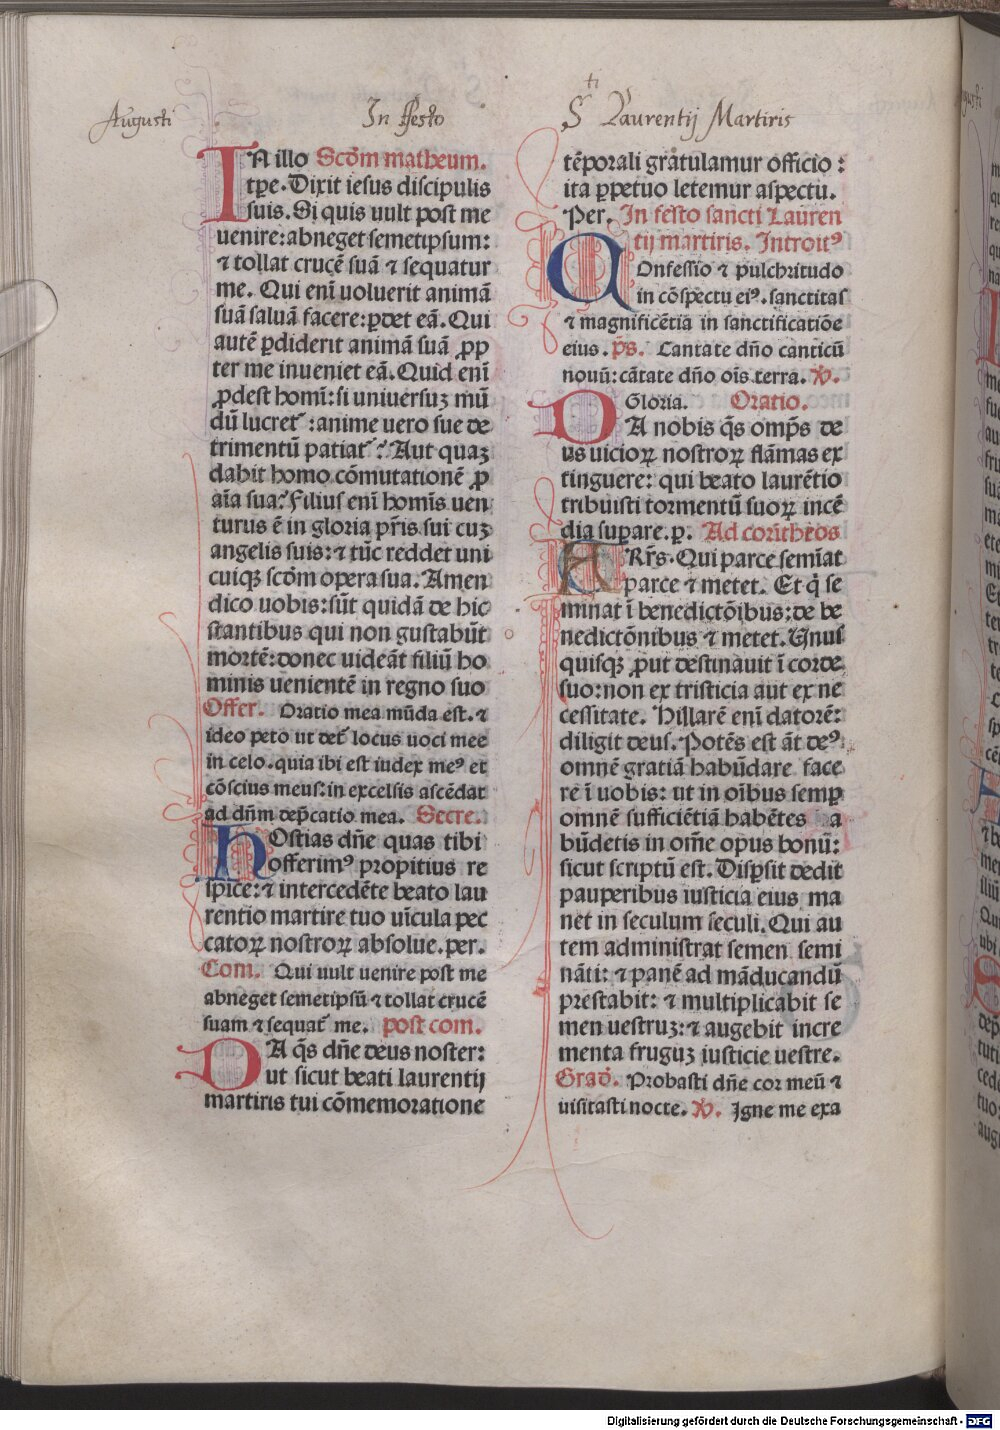 Augusti
In ffesto
S ti Laurentij Martiris
IN illo Scd̄m matheum.
tꝑe. Dixit iesus discipulis
suis. Si quis uult post me
uenire: abneget semetipsum:
⁊ tollat crucē suā ⁊ sequatur
me. Qui enī uoluerit animā
suā saluā facere: ꝑdet eā. Qui
autē ꝑdiderit animā suā ꝓp
ter me inueniet eā. Quid enī
ꝓdest homī: si uniuersuꝫ mū
dū lucret᷑: anime uero sue de
trimentū patiat᷑? Aut quaꝫ
dabit homo cōmutationē ꝓ
aīa sua? Filius enī homīs uen
turus ē in gloria pr̄is sui cuꝫ
angelis suis: ⁊ tūc reddet uni
cuiqꝫ scd̄m opera sua. Amen
dico uobis: sūt quidā de hic
stantibus qui non gustabūt
mortē: donec uideāt filiū ho
minis uenientē in regno suo
Offer. Oratio mea mūda est. ⁊
ideo peto ut det᷑ locus uoci mee
in celo. quia ibi est iudex meꝰ et
cōscius meus: in excelsis ascēdat
ad dn̄m dep̄catio mea. Secre.
HOstias dn̄e quas tibi
offerimꝰ propitius re
spice: ⁊ intercedēte beato lau
rentio martire tuo uīcula pec
catoꝝ nostroꝝ absolue. per.
Com. Qui uult uenire post me
abneget semetipsū ⁊ tollat crucē
suam ⁊ sequat᷑ me. post com.
DA q̄s dn̄e deus noster:
ut sicut beati laurentij
martiris tui cōmemoratione
tēporali gratulamur officio:
ita ꝑpetuo letemur aspectu.
Per. In festo sancti Lauren
tij martiris. Introitꝰ
COnfessio ⁊ pulchritudo
in cōspectu eiꝰ. sanctitas
⁊ magnificētia in sanctificatiōe
eius. p̄s. Cantate dn̄o canticū
nouū: cātate dn̄o oīs terra. ℣.
Gloria. Oratio.
DA nobis q̄s omp̄s de
us uicioꝝ nostroꝝ flāmas ex
tinguere: qui beato laurētio
tribuisti tormentū suoꝝ incē
dia suꝑare. p. Ad corītheos
FRr̄s. Qui parce semīat
parce ⁊ metet. Et q̄ se
minat ī benedictōibus: de be
nedictōnibus ⁊ metet. Unus
quisqꝫ ꝓut destinauit ī corde
suo: non ex tristicia aut ex ne
cessitate. Hillarē enī datorē:
diligit deus. Potēs est āt deꝰ
omnē gratiā habūdare face
re ī uobis: ut in oībus semꝑ
omnē sufficiētiā habētes a
būdetis in om̄e opus bonū:
sicut scriptū est. Disꝑsit dedit
pauperibus iusticia eius ma
net in seculum seculi. Qui au
tem administrat semen semi
nāti: ⁊ panē ad māducandū
prestabit: ⁊ multiplicabit se
men uestruꝫ: ⁊ augebit incre
menta fruguꝫ iusticie uestre.
Grad̄. Probasti dn̄e cor meū ⁊
uisitasti nocte. ℣. Igne me exa
Digitalisierung gefördert durch die Deutsche Forschungsgemeinschaft - DFG